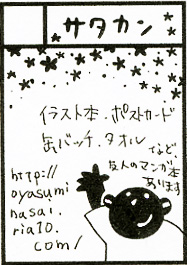 サタカン
イラスト本・ポストカード
缶バッチ、タオル
など
友人のマンガ本
あります
http://
oyasumi
nasai.
ria10.
com/